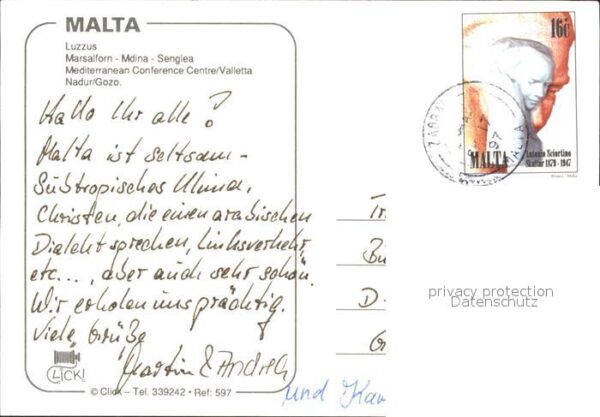 MALTA
Luzzus
Marsalforn - Mdina - Senglea
Mediterranean Conference Centre/Valletta
Nadur/Gozo.
Hallo Ihr alle!
Malta ist seltsam -
Subtropisches Klima,
Christen, die einen arabischen
Dialekt sprechen, Linksverkehr,
etc..., aber auch sehr schön.
Wir erholen uns prächtig.
Viele Grüße
Martin & Andrea
und
CLICK!
© Click - Tel. 339242 • Ref: 597
16c
97
MALTA
MALTA
Antonio Sciortino
Skultur 1879 - 1947
D-
privacy protection
Datenschutz